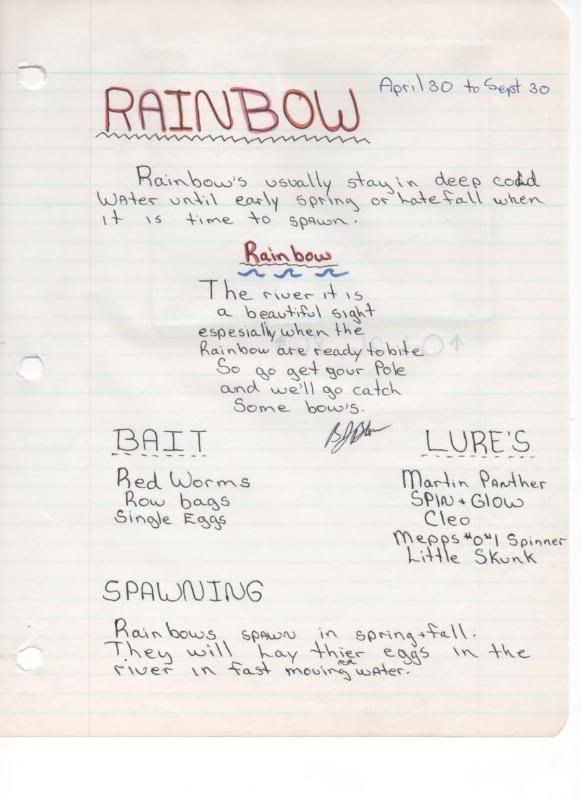 RAINBOW
April 30 to Sept 30
Rainbow's usually stay in deep cold
water until early spring or late fall when
it is time to spawn.
Rainbow
The river it is
a beautiful sight
espesially when the
Rainbow are ready to bite
So go get your Pole
and we'll go catch
Some bow's.
BAIT
Red Worms
Row bags
Single Eggs
LURE'S
Martin Panther
SPIN + GLOW
Cleo
Mepps #0 #1 Spinner
Little Skunk
SPAWNING
Rainbows spawn in spring + fall.
They will lay thier eggs in the
river in fast moving water.